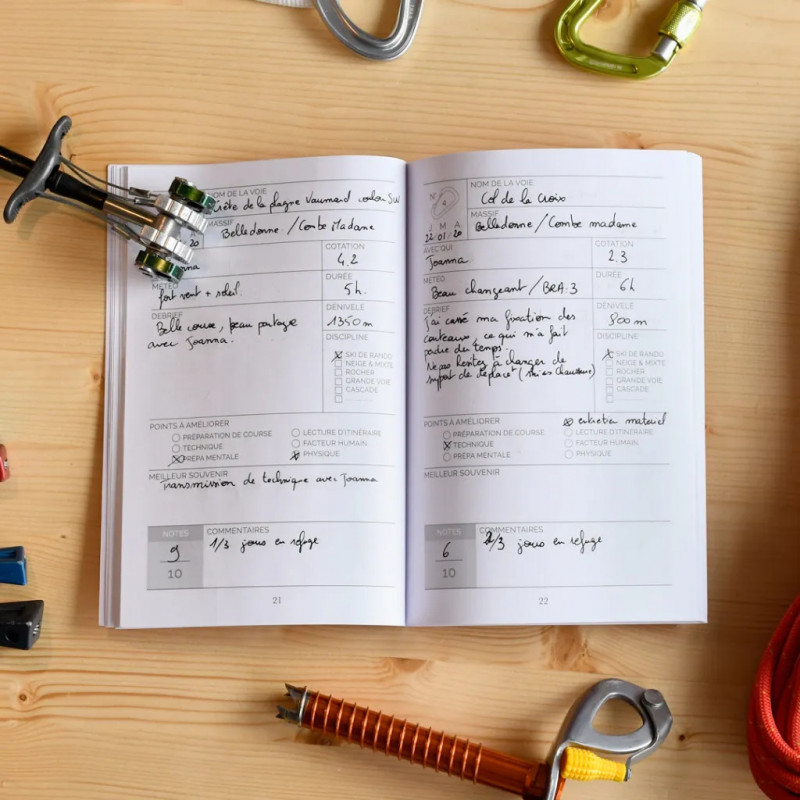 NOM DE LA VOIE
Crête de la plagne Vaumard couloir SW
MASSIF
Belledonne / Combe Madame
20
COTATION
4.2
MÉTÉO
fort vent + soleil.
DURÉE
5h.
DEBRIEF
Belle course, beau partage
avec Joanna.
DÉNIVELÉ
1350 m
DISCIPLINE
SKI DE RANDO
NEIGE & MIXTE
ROCHER
GRANDE VOIE
CASCADE
POINTS À AMÉLIORER
PRÉPARATION DE COURSE
LECTURE D'ITINÉRAIRE
TECHNIQUE
FACTEUR HUMAIN
PRÉPA MENTALE
PHYSIQUE
MEILLEUR SOUVENIR
Transmission de technique avec Joanna
NOTES
9
10
COMMENTAIRES
1/3 jours en refuge
21
N°
NOM DE LA VOIE
Col de la Croix
J M A
22 01 20
MASSIF
Belledonne / Combe madame
AVEC QUI
Joanna
COTATION
2.3
MÉTÉO
Beau changeant / BRA: 3
DURÉE
6h
DEBRIEF
J'ai cassé ma fixation des
couteaux, ce qui m'a fait
perdre du temps.
Ne pas hésiter à changer de
support de déplact (skis chaussures)
DÉNIVELÉ
900 m
DISCIPLINE
SKI DE RANDO
NEIGE & MIXTE
ROCHER
GRANDE VOIE
CASCADE
POINTS À AMÉLIORER
entretien materiel
PRÉPARATION DE COURSE
LECTURE D'ITINÉRAIRE
TECHNIQUE
FACTEUR HUMAIN
PRÉPA MENTALE
PHYSIQUE
MEILLEUR SOUVENIR
NOTES
6
10
COMMENTAIRES
2/3 jours en refuge
22